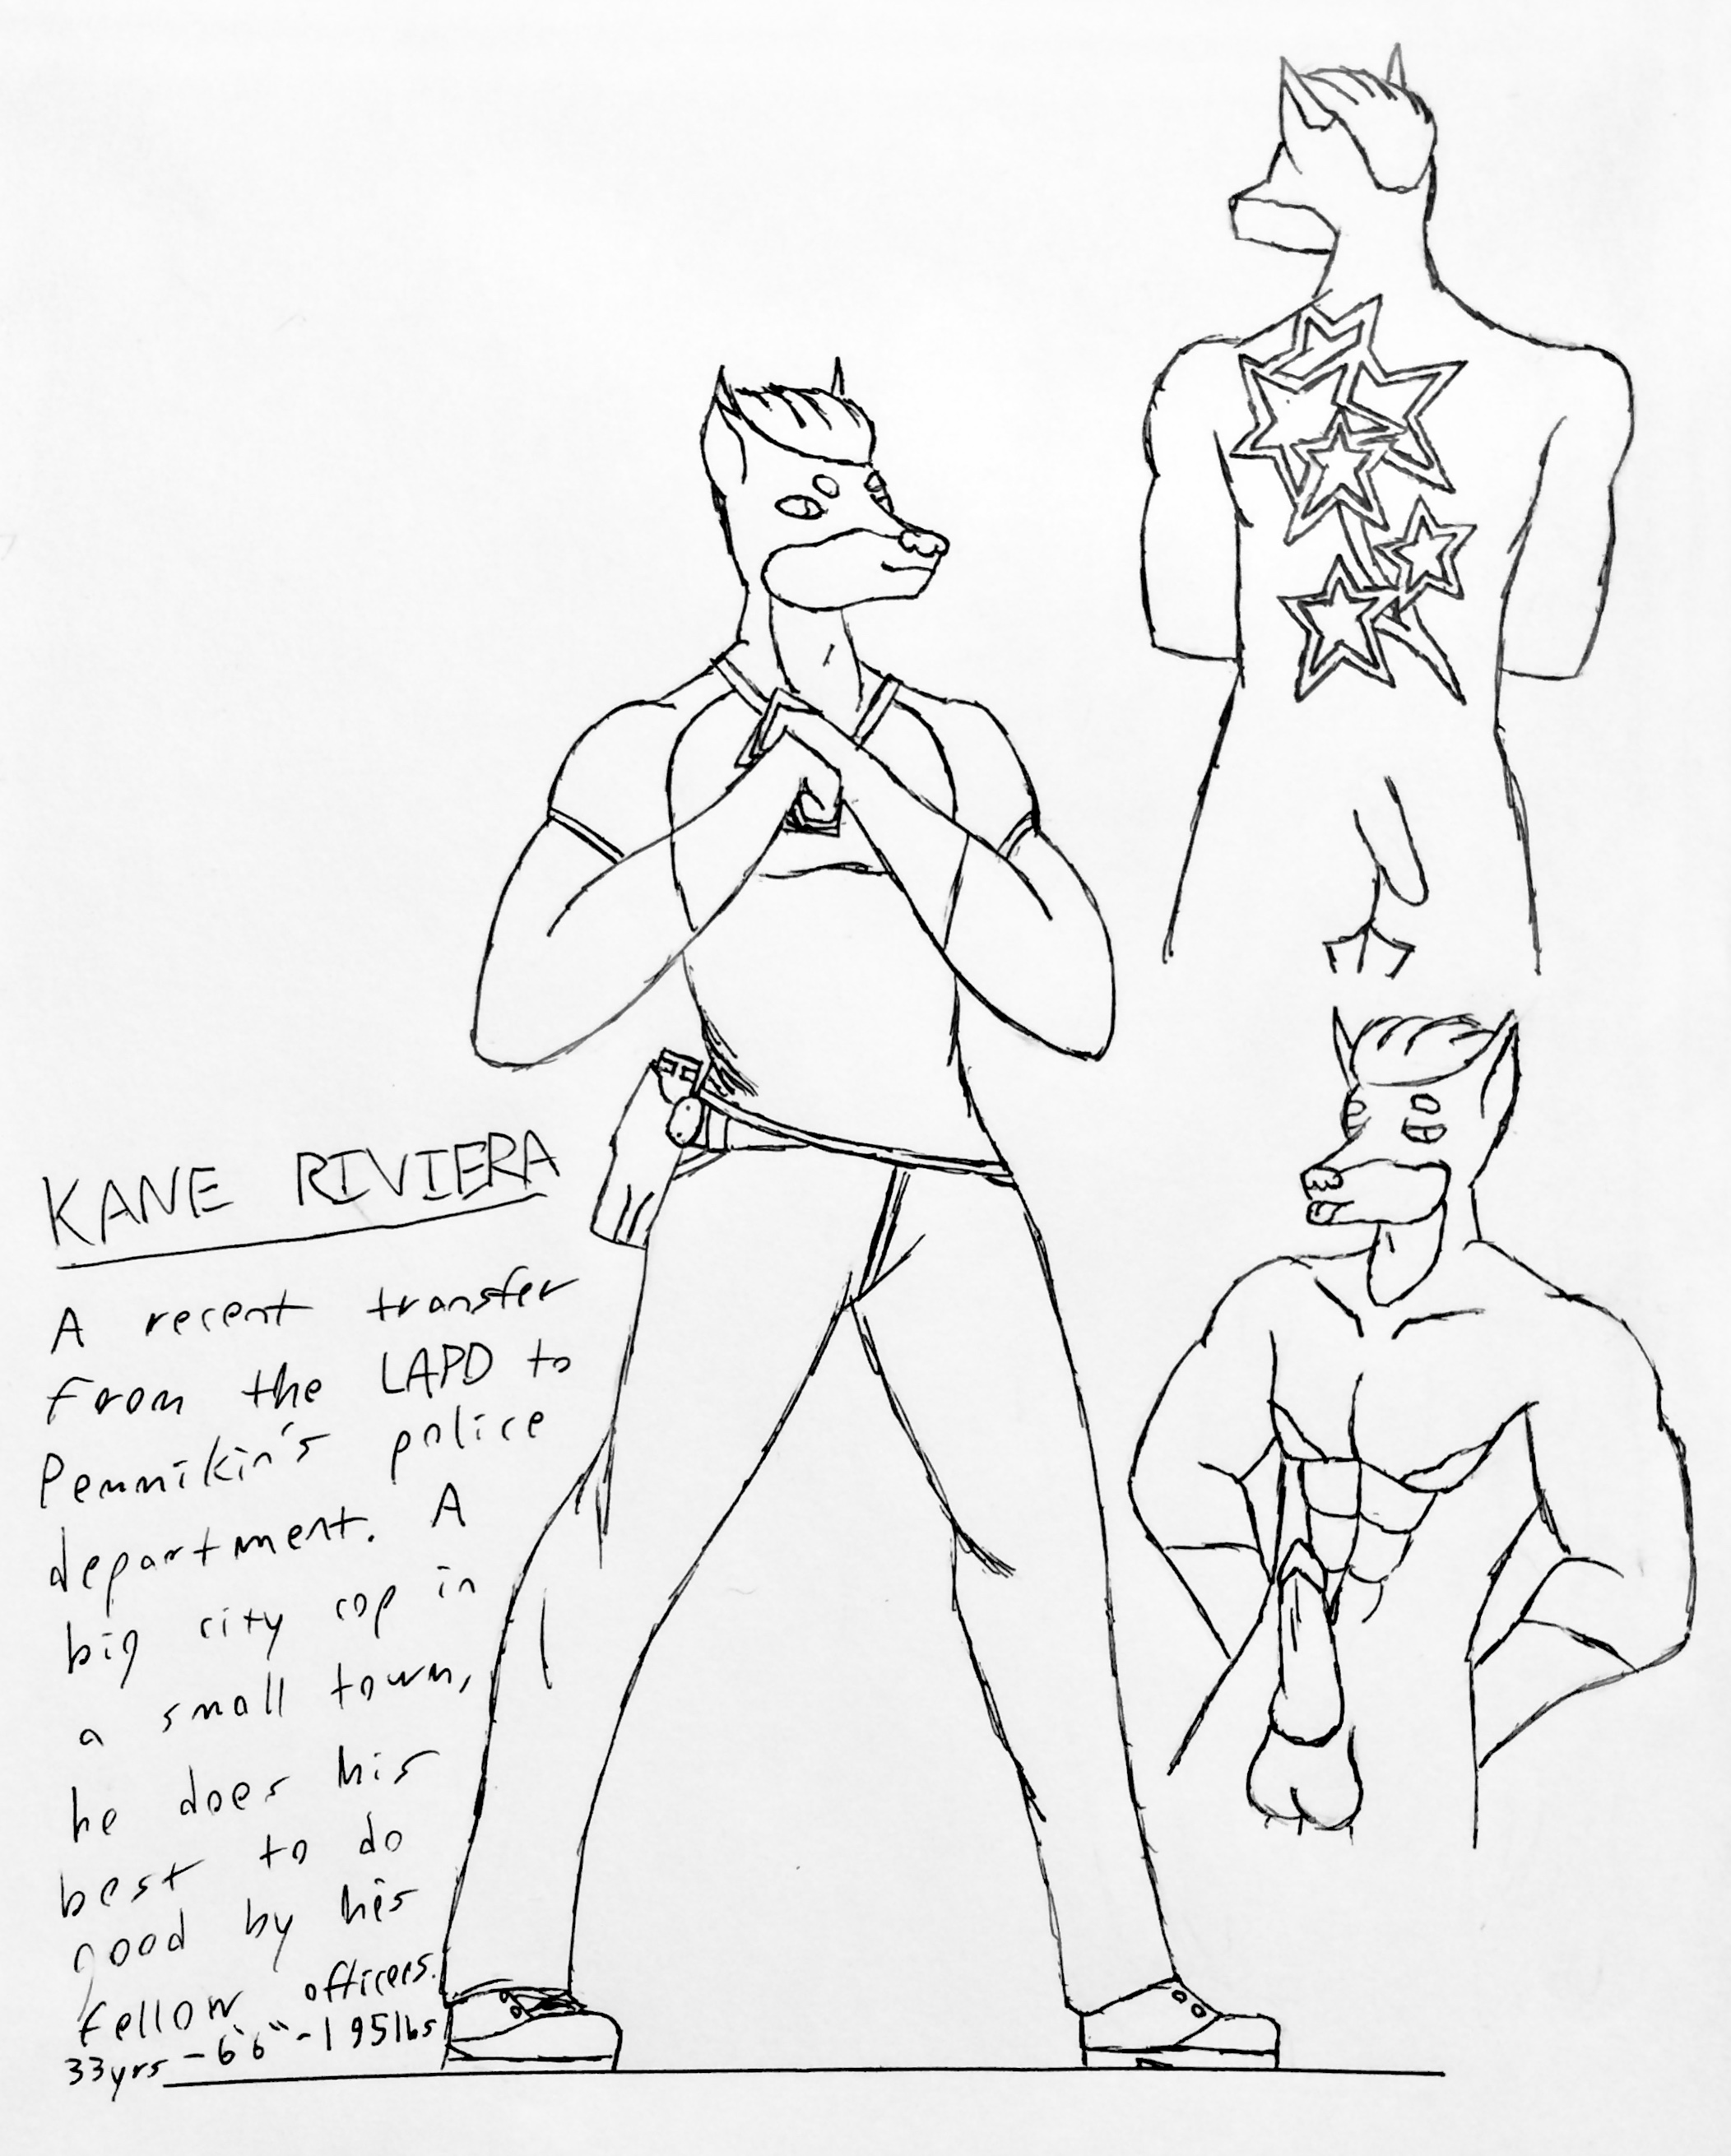 KANE RIVIERA
A recent transfer
from the LAPD to
Pemmikin's police
department. A
big city cop in
a small town,
he does his
best to do
good by his
fellow officers.
33yrs - 6'6" - 195lbs